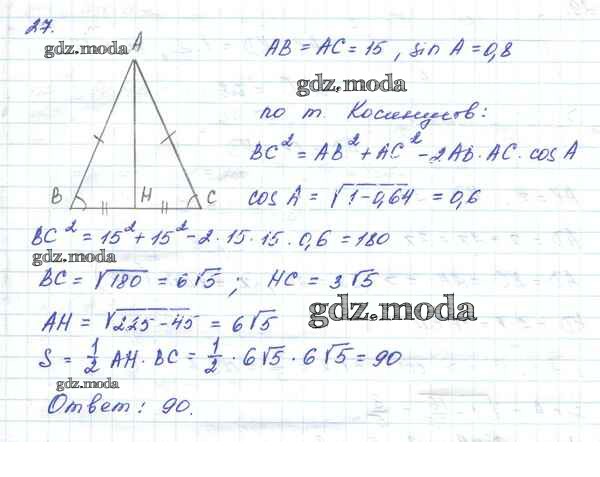 27.
gdz.moda
A
AB = AC = 15 , sin A = 0,8
gdz.moda
по т. Косинусов:
BC² = AB² + AC² - 2AB · AC · cos A
B H C
cos A = √1-0,64 = 0,6
BC² = 15² + 15² - 2 · 15 · 15 · 0,6 = 180
gdz.moda
BC = √180 = 6√5 ; HC = 3√5
gdz.moda
AH = √225-45 = 6√5
S = 1/2 AH · BC = 1/2 · 6√5 · 6√5 = 90
gdz.moda
Ответ: 90.